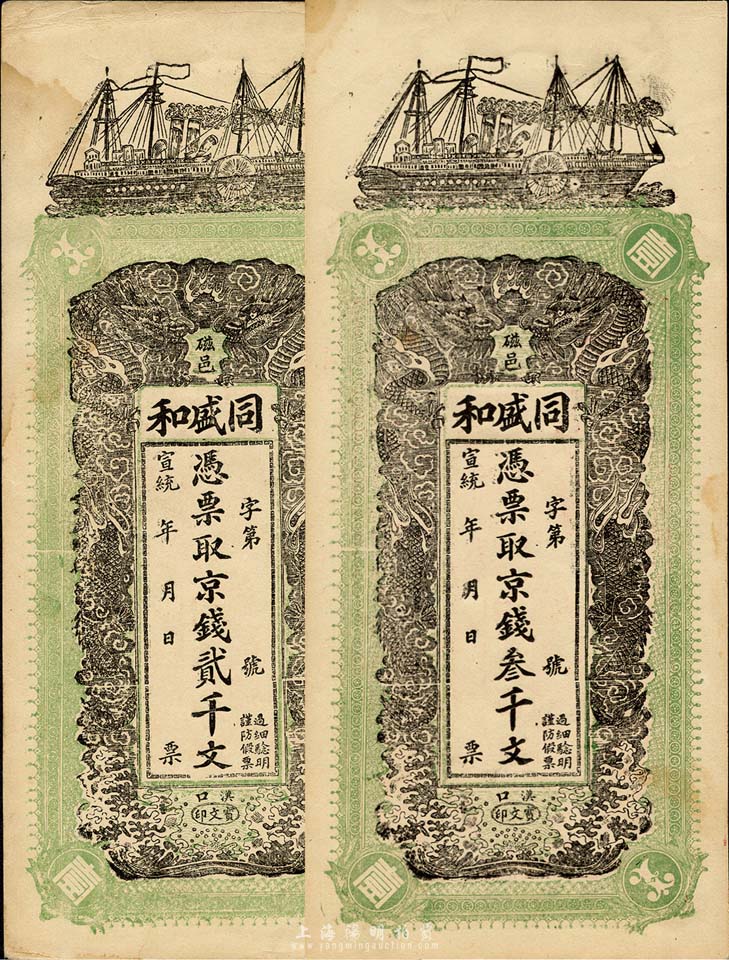 磁邑
同盛和
字第 號
憑票取京錢貳千文
宣統 年 月 日 票
過細驗明
謹防假票
漢口
寶文印
壹
磁邑
同盛和
字第 號
憑票取京錢叁千文
宣統 年 月 日 票
過細驗明
謹防假票
漢口
寶文印
壹
壹
上海陽明拍賣
www.yangmingauction.com